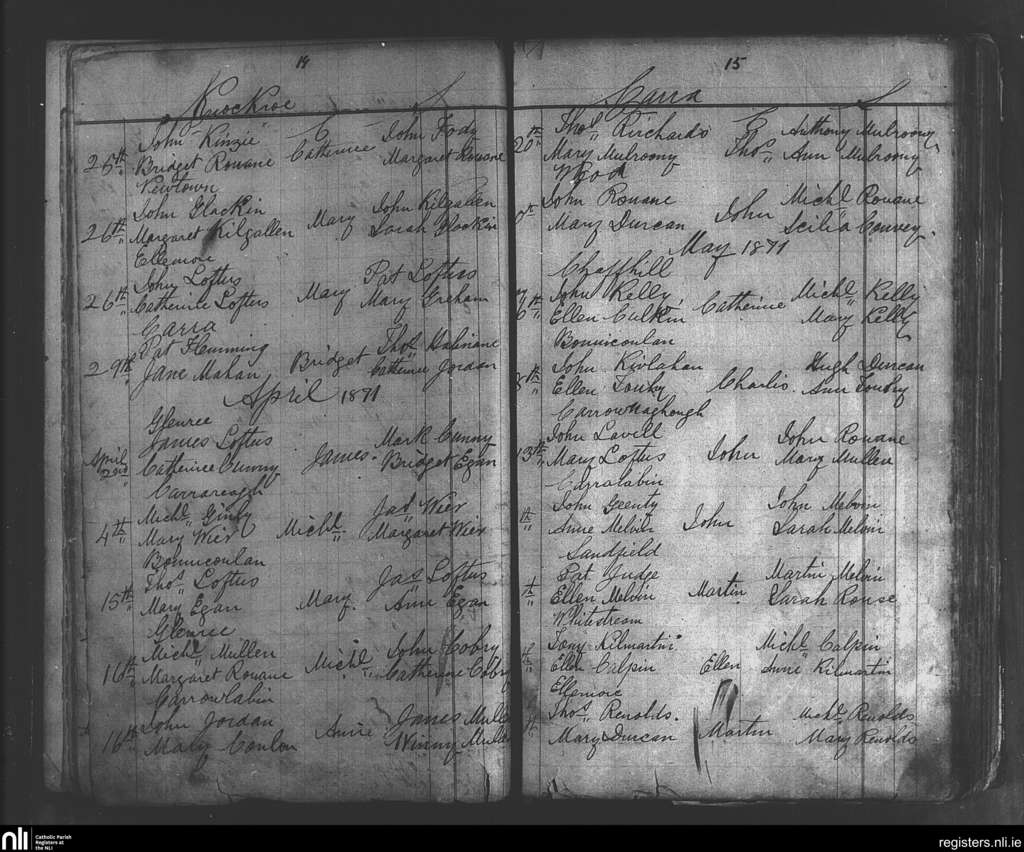 14
Knockroe
John Kinzie C John Fody
25th Bridget Rouane Catherine Margaret Rouane
Newtown
John Glackin John Kilgallen
26th Margaret Kilgallen Mary Sarah Glackin
Ellemore
John Loftus Pat Loftus
26th Catherine Loftus Mary Mary Greham
Carra
Pat Flemming Thos Halinane
29th Jane Mahan Bridget Catherine Jordan
April 1871
Glenree
James Loftus Mark Cunny
April 2nd Catherine Cunny James. Bridget Egan
Carrareagh
Michl Ginty Jas Wier
4th Mary Wier Michl Margaret Wier
Bonniconlan
Thos Loftus Jas Loftus
15th Mary Egan Mary. Ann Egan
Glenree
Michl Mullen John Cobry
16th Margaret Rouane Michl Catherine Cobry
Carrowlabin
John Jordan James
16th Mary Conlon Anne Winny
15
Carra S
Thos Richards C Anthony Mulroony
20th Mary Mulroony Thos Ann Mulroony
Wood
John Rouane Michl Rouane
Mary Duncan John Scilia Convey.
May 1871
Chaffhill
John Kelly Michl Kelly
Ellen Culkin Catherine Mary Kelly
Bonniconlan
John Kivlahan Hugh Duncan
Ellen Touhy Charlis. Ann Touhy
Carrownaghough
John Lavell John Rouane
13th Mary Loftus John Mary Mullen
Carralabin
John Geenty John Melvin
Anne Melvin John Sarah Melvin
Sandfield
Pat Judge Martin Melvin
Ellen Melvin Martin Sarah Rouse
Whitestream
Tony Kilmartin Michl Calpin
Ellen Calpin Ellen Anne Kilmartin
Ellemore
Thos Renolds. Michl Renolds
Mary Duncan Martin Mary Renolds
nli
Catholic Parish
Registers at
the NLI
registers.nli.ie